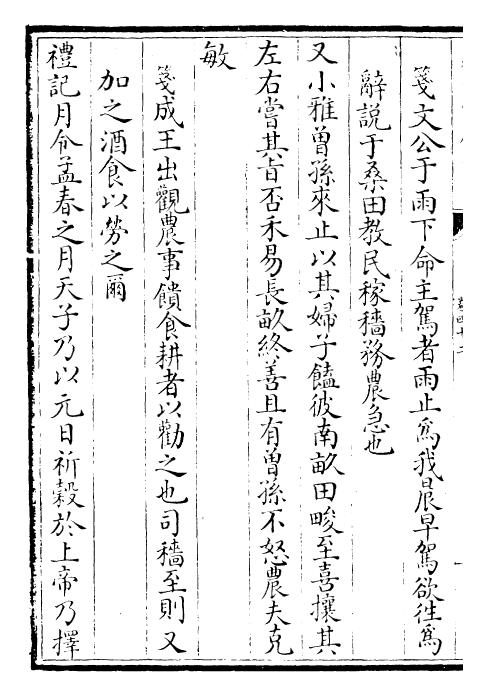 箋文公于雨下命主駕者雨止為我晨早駕欲徃為
辭説于桑田教民稼穡務農急也
又小雅曾孫來止以其婦子饁彼南畝田畯至喜攘其
左右嘗其旨否禾易長畝終善且有曾孫不怒農夫克
敏
箋成王出觀農事饋食耕者以勸之也司穡至則又
加之酒食以勞之爾
禮記月令孟春之月天子乃以元日祈榖於上帝乃擇